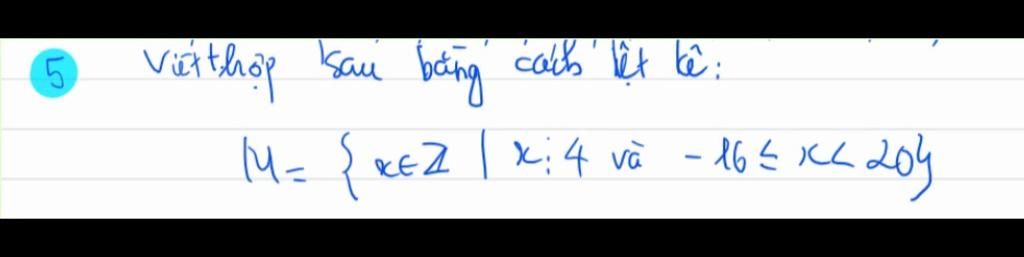 5 Viết t.hợp sau bằng cách liệt kê:
M = { x ∈ Z | x ⋮ 4 và - 16 ≤ x < 20}